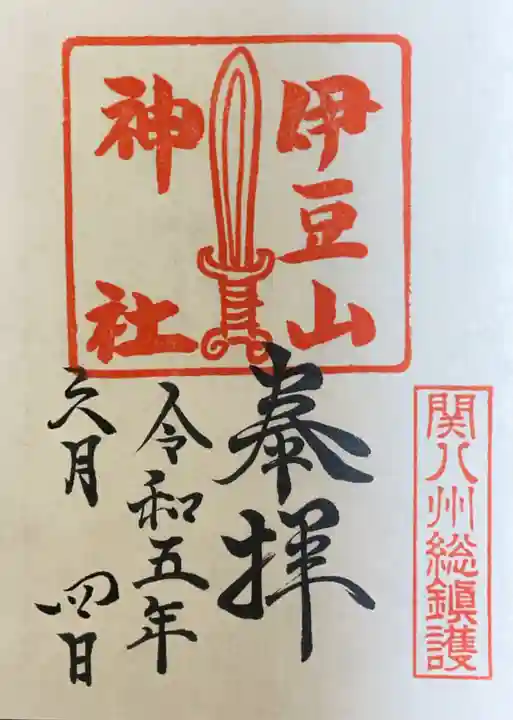 伊豆山
神社
関八州総鎮護
奉拝
令和五年
六月四日